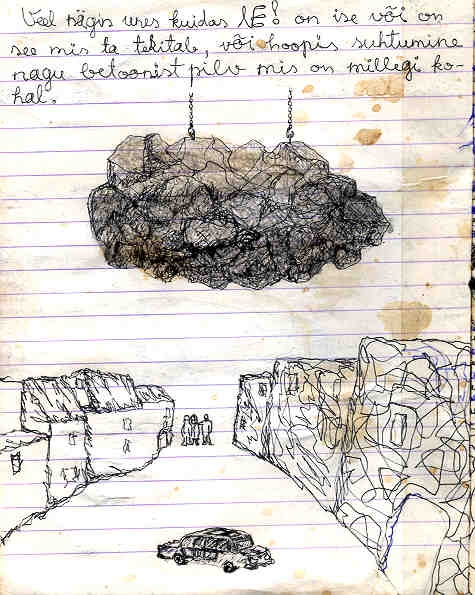 Veel rägis ures kuidas NE! on ise või on
see mis ta tekitab, või hoopis suhtumine
nagu betoonist pilv mis on millegi ko-
hal.